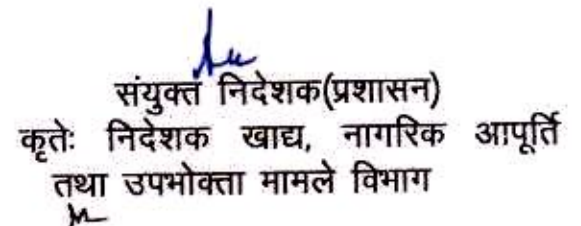 संयुक्त निदेशक(प्रशासन)
कृतेः निदेशक खाद्य, नागरिक आपूर्ति
तथा उपभोक्ता मामले विभाग